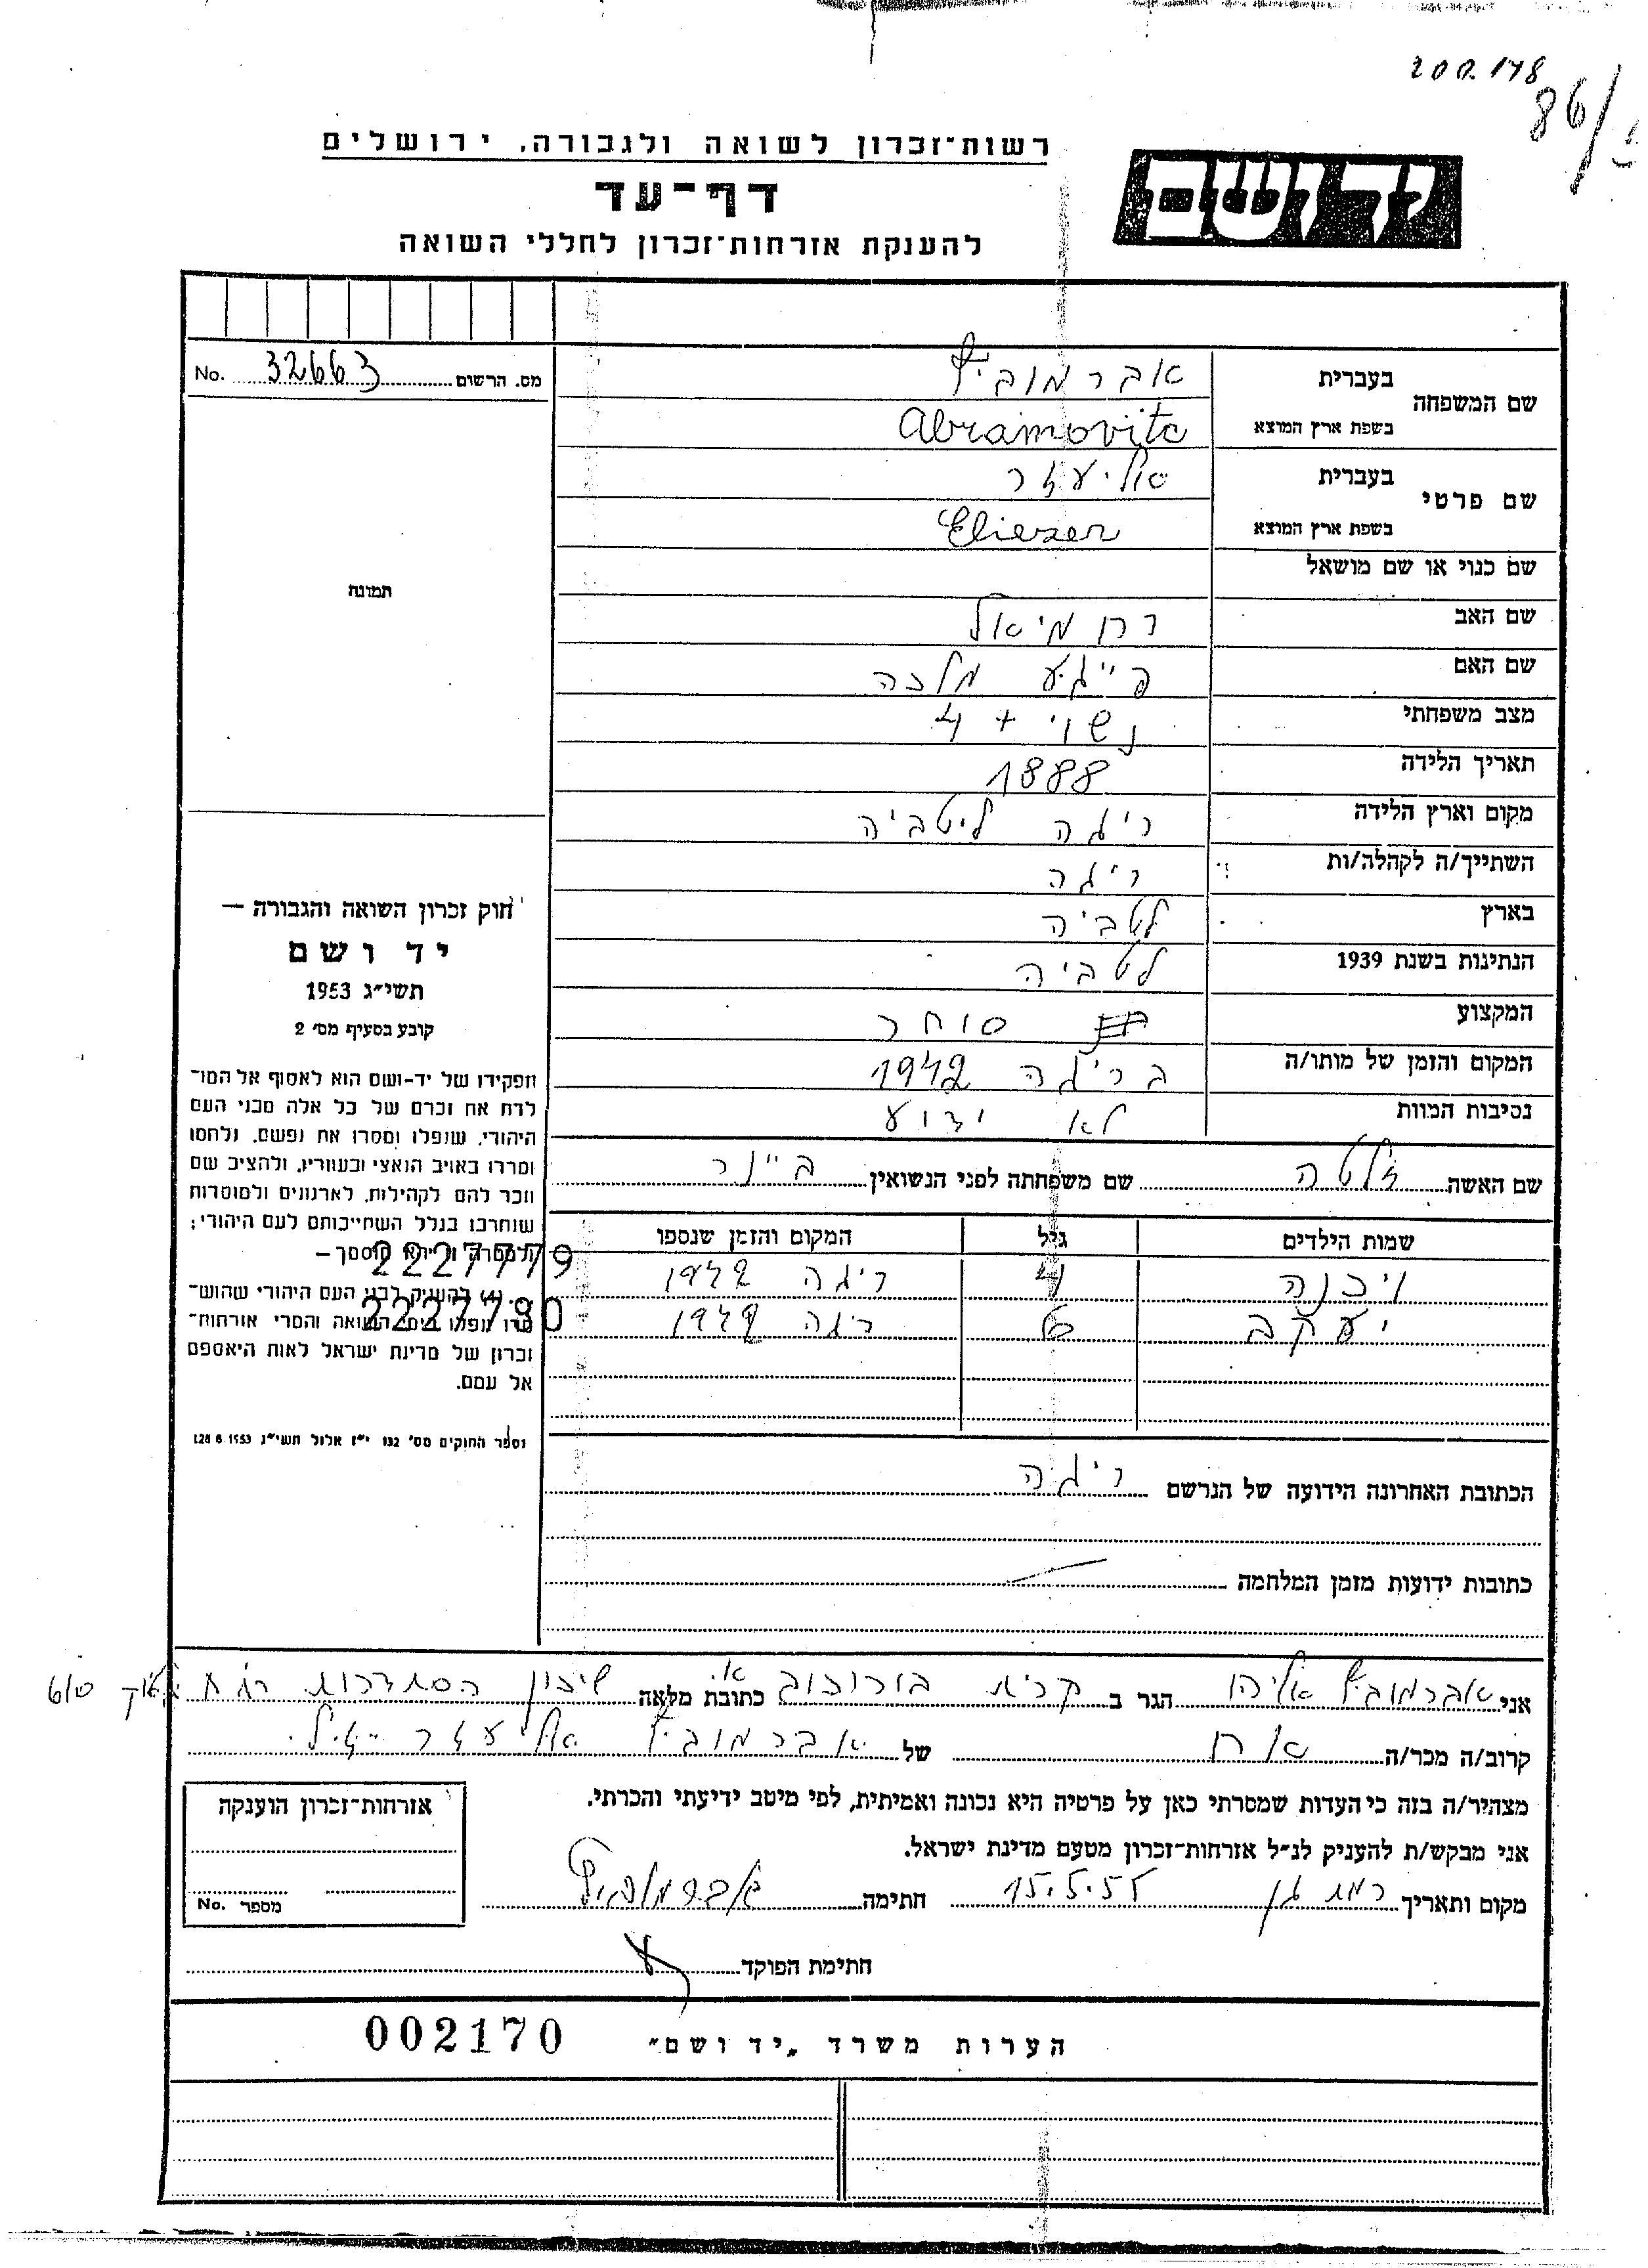 200.178
86/
רשות־זכרון לשואה ולגבורה, ירושלים
ידושם
דף־עד
להענקת אזרחות־זכרון לחללי השואה
מס. הרשום 32663 No.
שם המשפחה
בעברית אברמוביץ
בשפת ארץ המוצא Abramovitc
שם פרטי
בעברית אליעזר
בשפת ארץ המוצא Eliezer
שם כנוי או שם מושאל
שם האב
שם האם פייגע מלכה
מצב משפחתי נשוי + 4
תאריך הלידה 1888
מקום וארץ הלידה ריגה ליטביה
השתייך/ה לקהלה/ות ריגה
בארץ לטביה
הנתינות בשנת 1939 לטביה
המקצוע סוחר
המקום והזמן של מותו/ה בריגה 1942
נסיבות המוות לא ידוע
שם האשה זלטה שם משפחתה לפני הנשואין ביינר
שמות הילדים גיל המקום והזמן שנספו
4 ריגה 1942
יעקב 6 ריגה 1942
הכתובת האחרונה הידועה של הנרשם ריגה
כתובות ידועות מזמן המלחמה
תמונה
חוק זכרון השואה והגבורה —
יד ושם
תשי״ג 1953
קובע בסעיף מס׳ 2
תפקידו של יד-ושם הוא לאסוף אל המו־
לדת את זכרם של כל אלה מבני העם
היהודי, שנפלו ומסרו את נפשם, נלחמו
ומרדו באויב הנאצי ובעוזריו, ולהציב שם
וזכר להם לקהילות, לארגונים ולמוסדות
שנחרבו בגלל השתייכותם לעם היהודי;
2227779
להעניק לבני העם היהודי שהוש־
2227780
השואה והמרי אזרחות־
זכרון של מדינת ישראל לאות היאספם
אל עמם.
ספר החוקים מס׳ 132 י״ז אלול תשי״ג 28.8.1953
אני אברמוביץ אליהו הגר ב קרית בורוכוב כתובת מלאה שיכון הסתדרות
קרוב/ה מכר/ה אח של אברמוביץ אליעזר ז״ל
מצהיר/ה בזה כי העדות שמסרתי כאן על פרטיה היא נכונה ואמיתית, לפי מיטב ידיעתי והכרתי.
אני מבקש/ת להעניק לנ״ל אזרחות־זכרון מטעם מדינת ישראל.
מקום ותאריך רמת גן 15.5.55 חתימה אברמוביץ
אזרחות־זכרון הוענקה
מספר No.
חתימת הפוקד
הערות משרד „יד ושם״ 002170